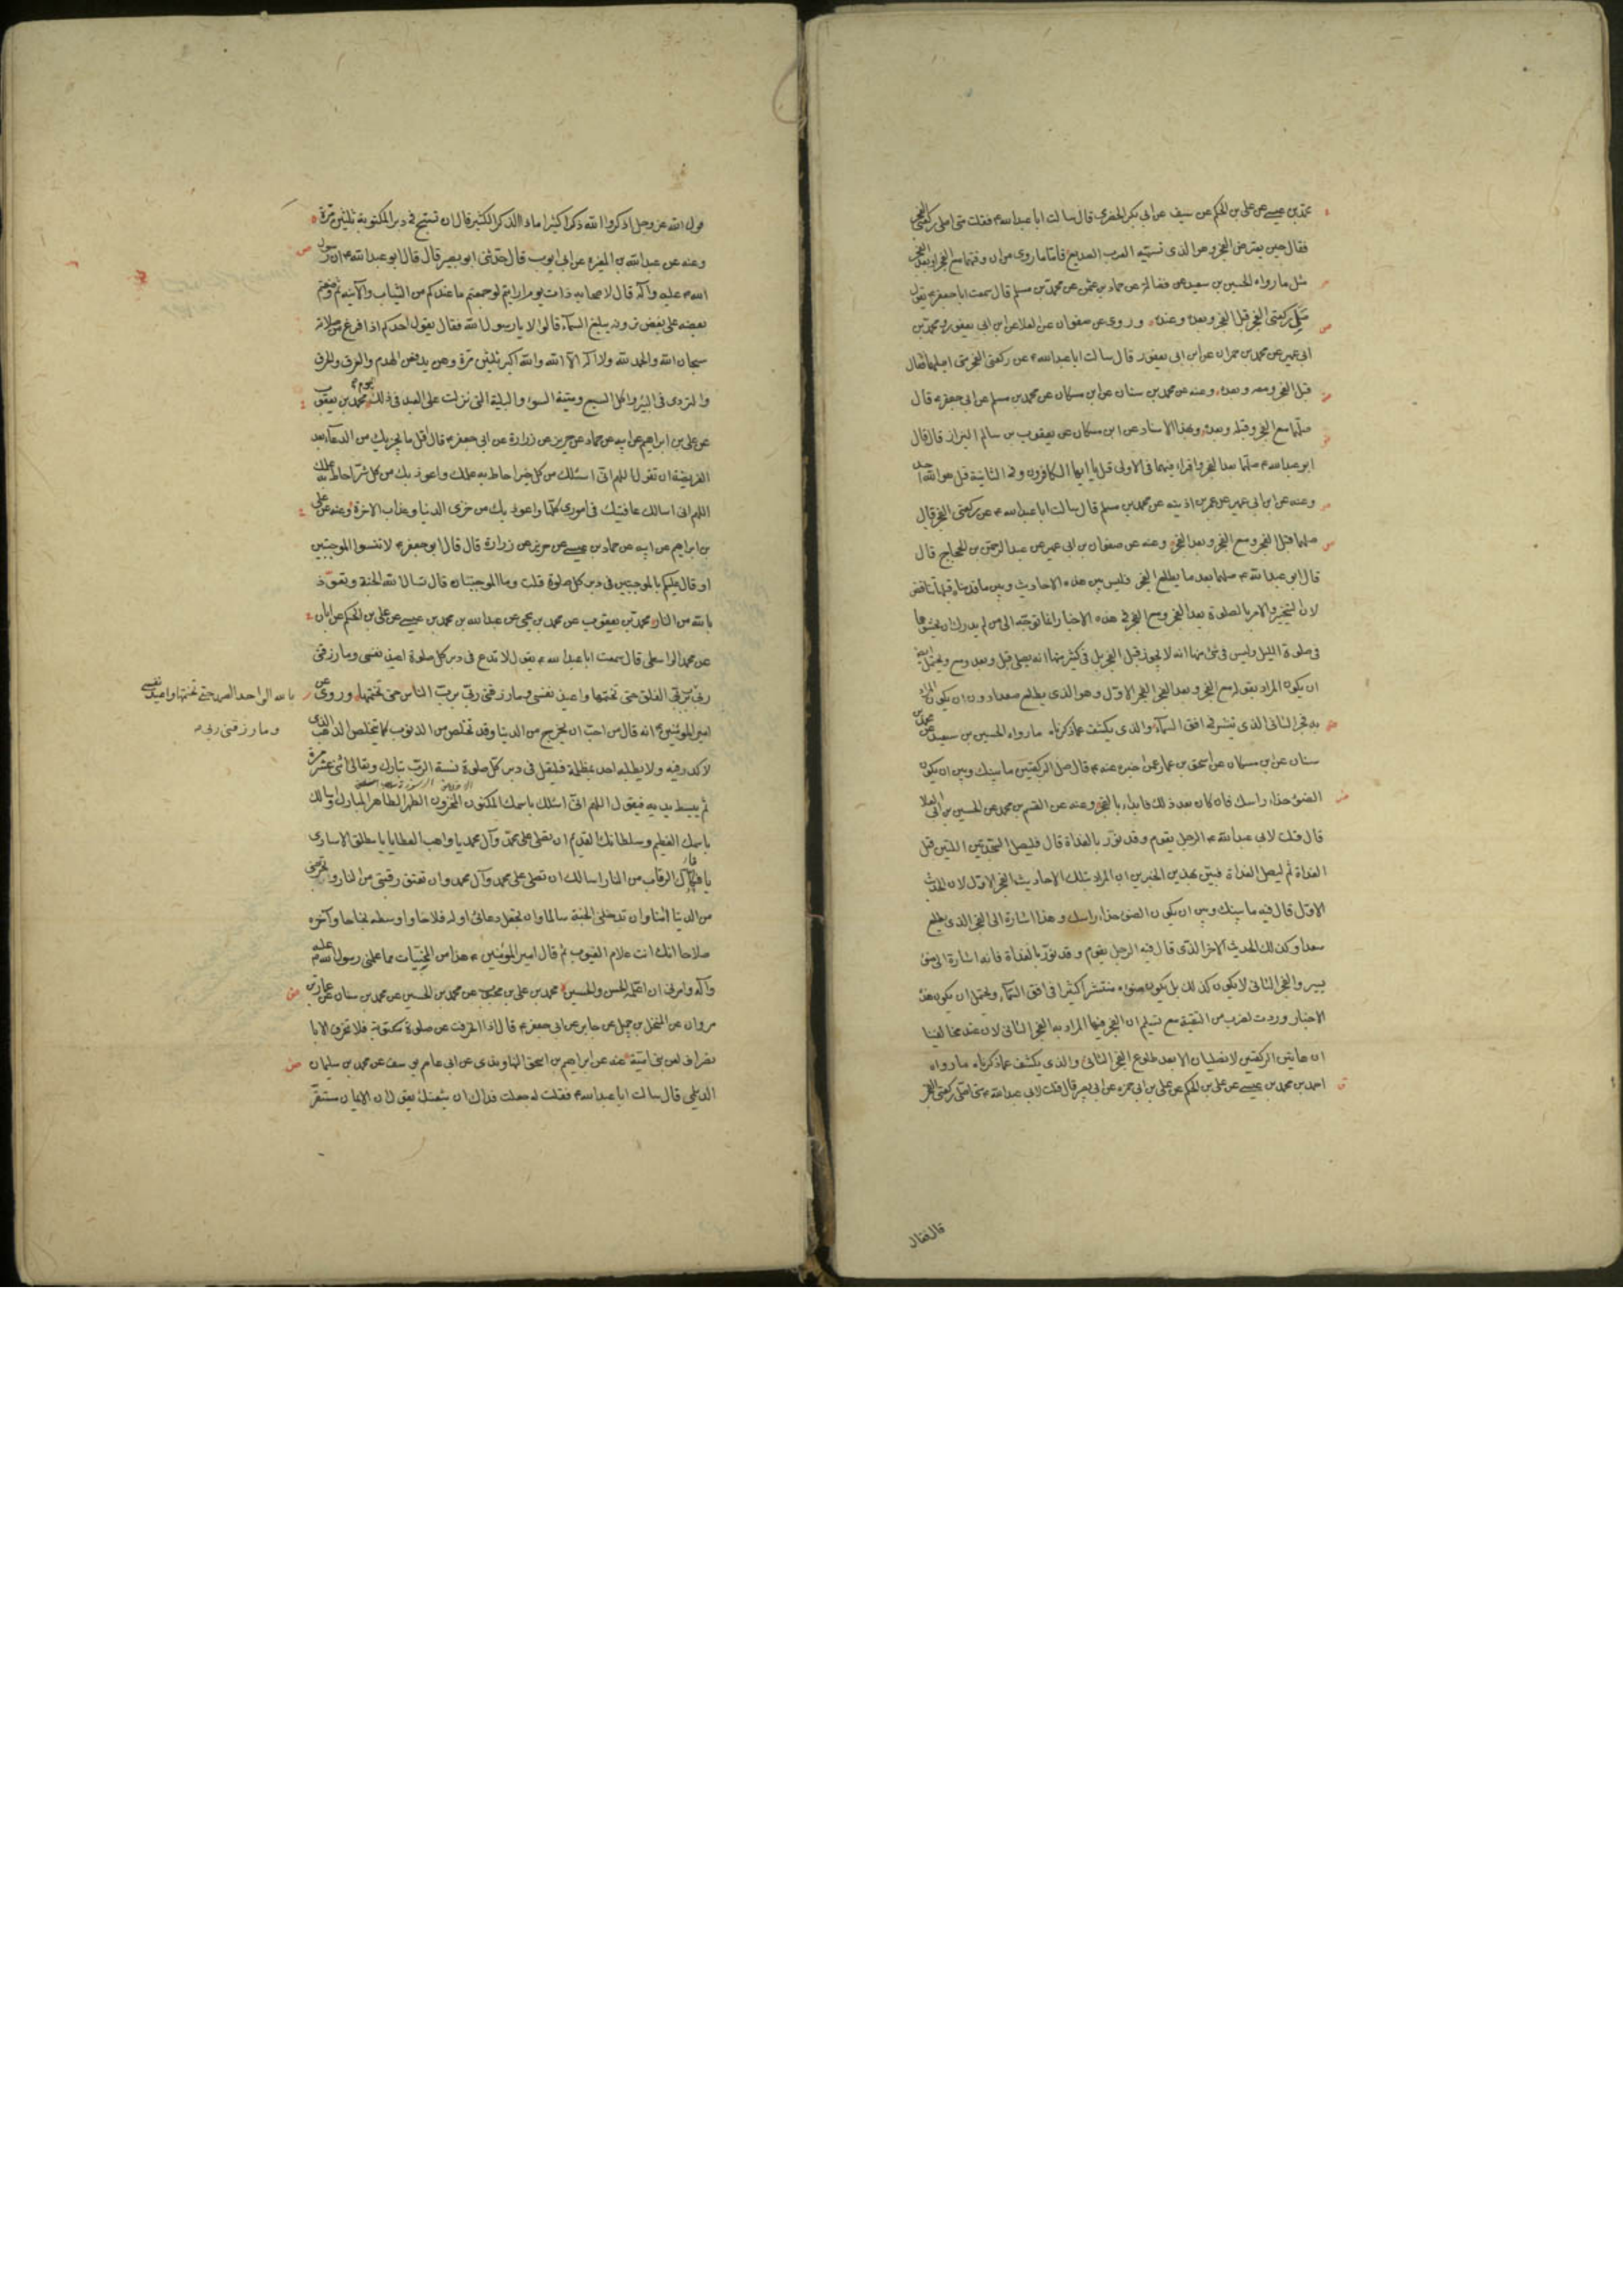 محمد بن عيسى عن علي بن الحكم عن سيف عن ابي بكر الحضرمي قال سالت ابا عبد الله ع فقلت متى اصلي ركعتي الفجر
فقال حين يعترض الفجر وهو الذي تسميه العرب الصديع فاما ما روي من ان وقتهما مع الفجر او بعد الفجر
مثل ما رواه الحسين بن سعيد عن فضالة عن حماد بن عثمن عن محمد بن مسلم قال سمعت ابا جعفر ع يقول
صل ركعتي الفجر قبل الفجر وبعده وعنده وروى عن صفوان عن العلا عن ابن ابي يعفور ومحمد بن
ابي عمير عن محمد بن حمران عن ابن ابي يعفور قال سالت ابا عبد الله ع عن ركعتي الفجر متى اصليهما فقال
قبل الفجر ومعه وبعده وعنه عن محمد بن سنان عن ابن مسكان عن محمد بن مسلم عن ابي جعفر ع قال
صلهما مع الفجر وقبله وبعده وبهذا الاسناد عن ابن مسكان عن يعقوب بن سالم البزاز قال قال
ابو عبد الله ع صلهما بعد الفجر واقراء فيهما في الاولى قل يا ايها الكافرون وفي الثانية قل هو الله احد
وعنه عن ابن ابي عمير عن عمر بن اذينه عن محمد بن مسلم قال سالت ابا عبد الله ع عن ركعتي الفجر قال
صلهما قبل الفجر ومع الفجر وبعد الفجر وعنه عن صفوان بن ابي عمير عن عبد الرحمن بن الحجاج قال
قال ابو عبد الله ع صلهما بعد ما يطلع الفجر فليس بين هذه الاحاديث وبين ما قدمناه قبلها تناقض
لان التخيير والامر بالصلوة بعد الفجر ومع الفجر في هذه الاخبار انما توجه الى من لم يدرك ان يحشوهما
في صلوة الليل وليس في شئ منها انه لا يجوز قبل الفجر بل في كثير منها انه يصلى قبل وبعد ومع ويحتمل ايضا
ان يكون المراد بقوله مع الفجر وبعد الفجر الفجر الاول وهو الذي يطلع صعدا دون ان يكون المراد
به فجر الثاني الذي ينتشر في افق السماء والذي يكشف عما ذكرناه ما رواه الحسين بن سعيد عن محمد بن
سنان عن ابن مسكان عن اسحق بن عمار عمن اخبره عنه ع قال صل الركعتين ما بينك وبين ان يكون
الضوء حذاء راسك فان كان بعد ذلك فابداء بالفجر وعنه عن القسم بن محمد عن الحسين بن ابي العلا
قال قلت لابي عبد الله ع الرجل يقوم وقد نور بالغداة قال فليصل السجدتين اللتين قبل
الغداة ثم ليصل الغداة فبين بهذين الخبرين ان المراد بتلك الاحاديث الفجر الاول لان الحديث
الاول قال فيه ما بينك وبين ان يكون الضوء حذاء راسك وهذا اشارة الى الفجر الذي يطلع
صعدا وكذلك الحديث الاخر الذي قال فيه الرجل يقوم وقد نور بالغداة فانه اشارة الى ضوء
يسير والفجر الثاني لا يكون كذلك بل يكون ضوءه منتشرا كثيرا في افق السماء ويحتمل ان يكون هذه
الاخبار وردت لضرب من التقية مع تسليم ان الفجر فيها المراد به الفجر الثاني لان عند مخالفينا
ان هاتين الركعتين لا تصليان الا بعد طلوع الفجر الثاني والذي يكشف عما ذكرناه ما رواه
احمد بن محمد بن عيسى عن علي بن الحكم عن علي بن ابي حمزه عن ابي بصير قال قلت لابي عبد الله ع متى اصلى ركعتي الفجر
قال فقال
قول الله عز وجل اذكروا الله ذكرا كثيرا ماذا الذكر الكثير قال ان تسبح في دبر المكتوبة ثلثين مرة
وعنه عن عبد الله بن المغيرة عن ابي ايوب قال حدثني ابو بصير قال قال ابو عبد الله ع ان رسول
الله ص عليه وآله قال لاصحابه ذات يوم ارايتم لو جمعتم ما عندكم من الثياب والآنية ثم وضعتم
بعضه على بعض ترونه يبلغ السماء قالوا لا يا رسول الله فقال يقول احدكم اذا فرغ من صلاته
سبحان الله والحمد لله ولا اله الا الله والله اكبر ثلثين مرة وهن يدفعن الهدم والغرق والحرق
والتردي في البئر واكل السبع وميتة السوء والبلية التي نزلت على العبد في ذلك اليوم محمد بن يعقوب
عن علي بن ابراهيم عن ابيه عن حماد عن حريز عن زرارة عن ابي جعفر ع قال اقل ما يجزيك من الدعاء بعد
الفريضة ان تقول اللهم اني اسئلك من كل خير احاط به علمك واعوذ بك من كل شر احاط به علمك
اللهم اني اسالك عافيتك في اموري كلها واعوذ بك من خزى الدنيا وعذاب الاخرة وعنه عن علي
بن ابراهيم عن ابيه عن حماد بن عيسى عن حريز عن زرارة قال قال ابو جعفر ع لا تنسوا الموجبتين
او قال عليكم بالموجبتين في دبر كل صلوة قلت وما الموجبتان قال تسال الله الجنة وتعوذ
بالله من النار محمد بن يعقوب عن محمد بن يحيى عن عبد الله بن محمد بن عيسى عن علي بن الحكم عن ابان
عن محمد الواسطي قال سمعت ابا عبد الله ع يقول لا تدع في دبر كل صلوة اعيذ نفسي وما رزقني
ربي برب الفلق حتى تختمها واعيذ نفسي وما رزقني ربي برب الناس حتى تختمها وروى عن
بالله الواحد الصمد حتى تختمها واعيذ نفسي
وما رزقني ربي
امير المؤمنين ع انه قال من احب ان يخرج من الدنيا وقد تخلص من الذنوب كما يتخلص الذهب الذي
لا كدر فيه ولا يطلبه احد بمظلمة فليقل في دبر كل صلوة نسبة الرب تبارك وتعالى اثني عشر مرة
ثم يبسط يديه فيقول اللهم اني اسئلك باسمك المكنون المخزون الطهر الطاهر المبارك واسالك
باسمك العظيم وسلطانك القديم ان تصلي على محمد وآل محمد يا واهب العطايا يا مطلق الاسارى
يا فكاك الرقاب من النار اسالك ان تصلي على محمد وآل محمد وان تعتق رقبتي من النار وتخرجني
من الدنيا آمنا وان تدخلني الجنة سالما وان تجعل دعائي اوله فلاحا واوسطه نجاحا وآخره
صلاحا انك انت علام الغيوب ثم قال امير المؤمنين ع هذا من المخبيات مما علمني رسول الله ص عليه
وآله وامرني ان اعلمه الحسن والحسين محمد بن علي بن محبوب عن محمد بن الحسين عن محمد بن سنان عن عمار بن
مروان عن المنخل بن جميل عن جابر عن ابي جعفر ع قال اذا انحرفت عن صلوة مكتوبة فلا تنحرف الا با
نصراف لعن بني امية عنه عن ابراهيم بن اسحق النهاوندي عن ابي عاصم يوسف عن محمد بن سليمان
الديلمي قال سالت ابا عبد الله ع فقلت له جعلت فداك ان شيعتك يقولون ان الايمان مستقر